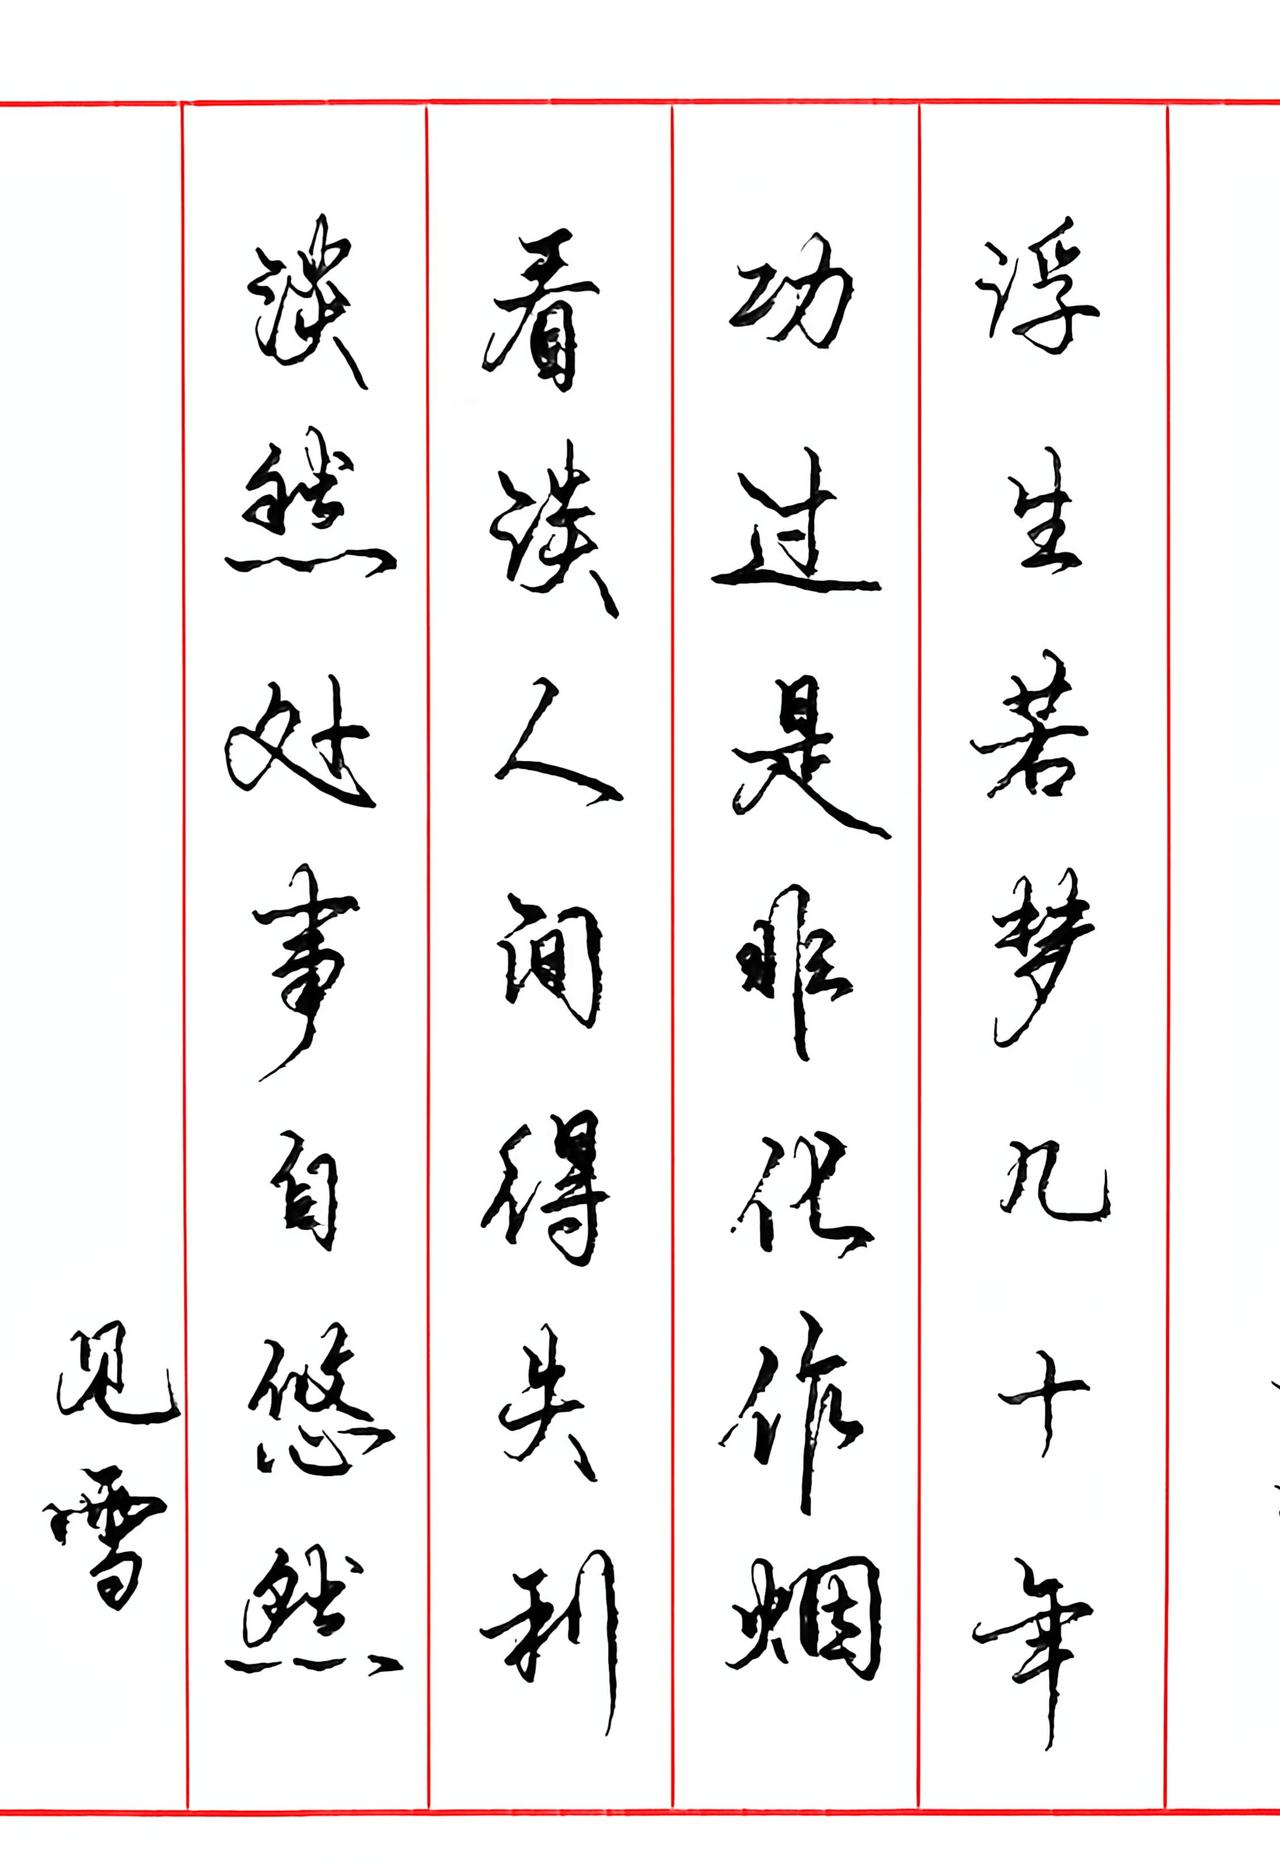 浮生若梦几十年
功过是非化作烟
看淡人间得失利
淡然处事自悠然
见雪